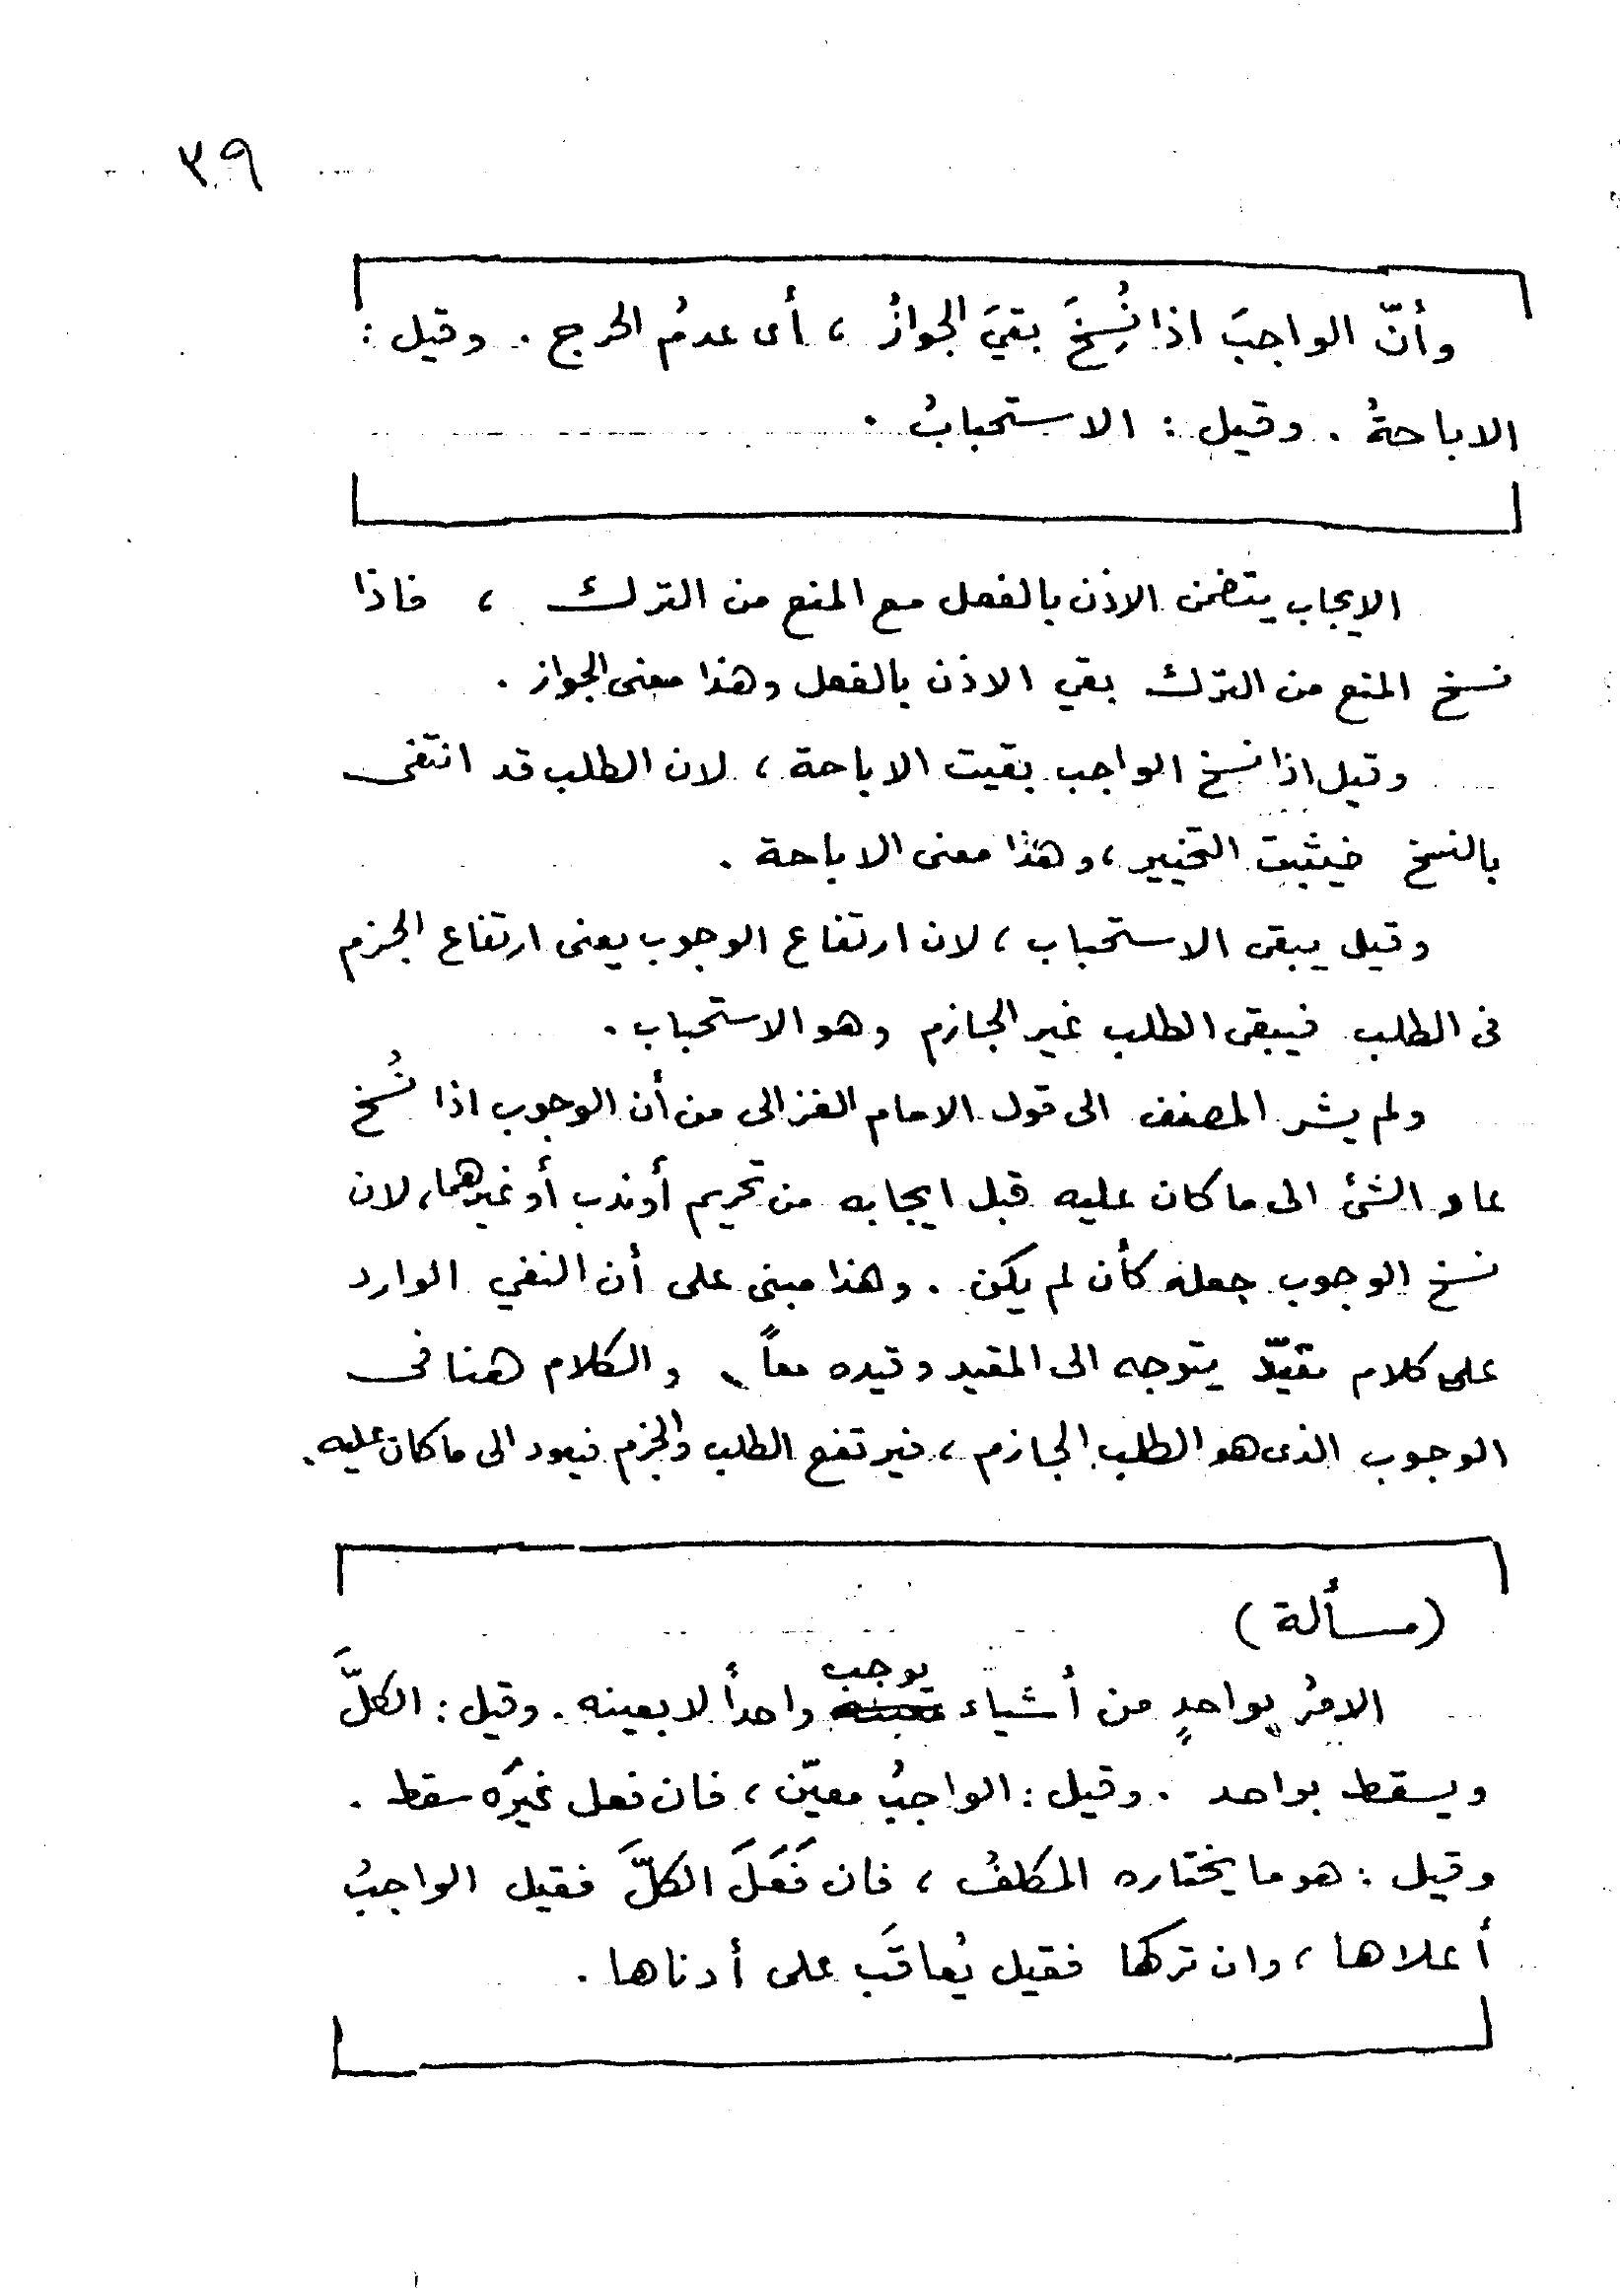 ٣٩
وأنّ الواجبَ اذا نُسِخَ بقيَ الجوازُ ، أى عدمُ الحرج . وقيل :
الاباحةُ . وقيل : الاستحبابُ .
الايجاب يتضمن الاذن بالفعل مع المنع من الترك ، فاذا
نسخ المنع من الترك بقي الاذن بالفعل وهذا معنى الجواز .
وقيل اذا نسخ الواجب بقيت الاباحة ، لان الطلب قد انتفى
بالنسخ فيثبت التخيير ، وهذا معنى الاباحة .
وقيل يبقى الاستحباب ، لان ارتفاع الوجوب يعنى ارتفاع الجزم
فى الطلب فيبقى الطلب غير الجازم وهو الاستحباب .
ولم يشر المصنف الى قول الامام الغزالى من أن الوجوب اذا نُسخ
عاد الشئ الى ما كان عليه قبل ايجابه من تحريم أو ندب أو غيرهما ، لان
نسخ الوجوب جعله كأن لم يكن . وهذا مبنى على أن النفي الوارد
على كلام مقيّد يتوجه الى المقيد وقيده معاً ، والكلام هنا فى
الوجوب الذى هو الطلب الجازم ، فيرتفع الطلب والجزم فيعود الى ما كان عليه .
( مسألة )
الامرُ بواحدٍ من أشياء يوجب واحداً لا بعينه . وقيل : الكلَّ
ويسقط بواحد . وقيل : الواجبُ معيّن ، فان فعل غيرَه سقط .
وقيل : هو ما يختاره المكلفُ ، فان فَعَلَ الكلَّ فقيل الواجبُ
أعلاها ، وان تركها فقيل يُعاقَب على أدناها .